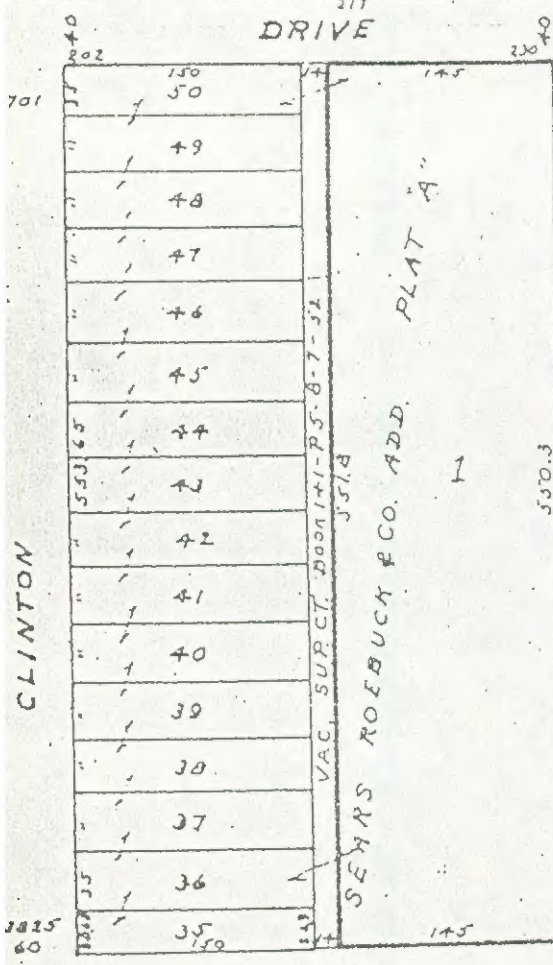 211
DRIVE
40
202
150
14
145
230
40
701
35
50
49
48
47
46
45
44
43
42
41
40
39
38
37
36
35
150
65
553
CLINTON
35
14
VAC. SUP. CT. BOOK 141-P5-8-7-52
551.8
SEARS ROEBUCK & CO. ADD. PLAT "A"
1
550.3
145
60